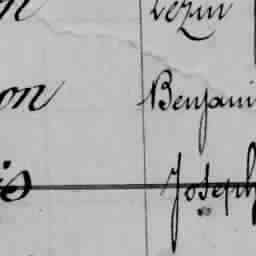 n Lezin
on Benjami
is Joseph